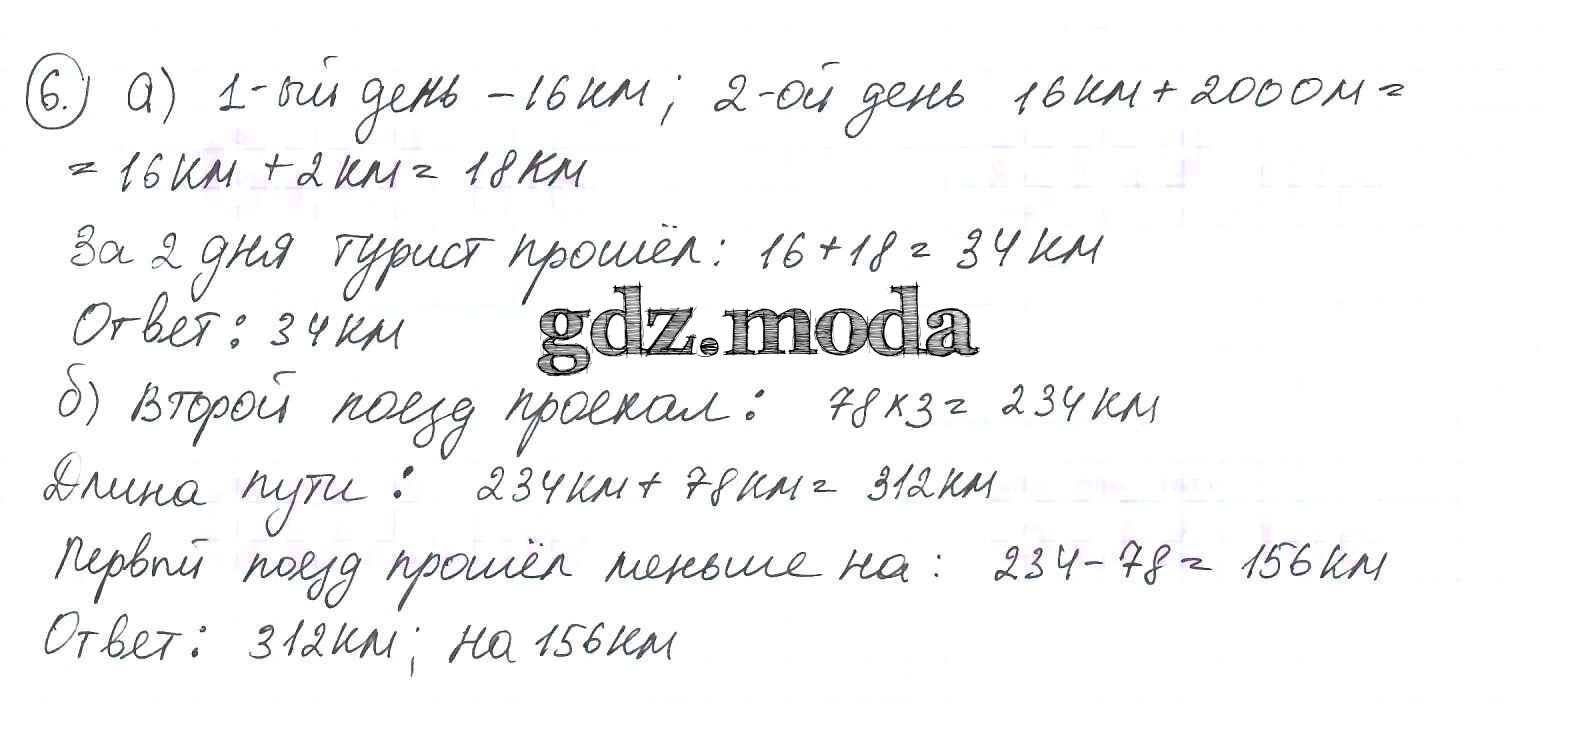 6. а) 1-ый день – 16км; 2-ой день 16км + 2000м =
= 16км + 2км = 18км
За 2 дня турист прошёл: 16 + 18 = 34км
Ответ: 34км
gdz.moda
б) Второй поезд проехал: 78×3 = 234км
Длина пути: 234км + 78км = 312км
Первый поезд прошёл меньше на: 234 – 78 = 156км
Ответ: 312км; на 156км